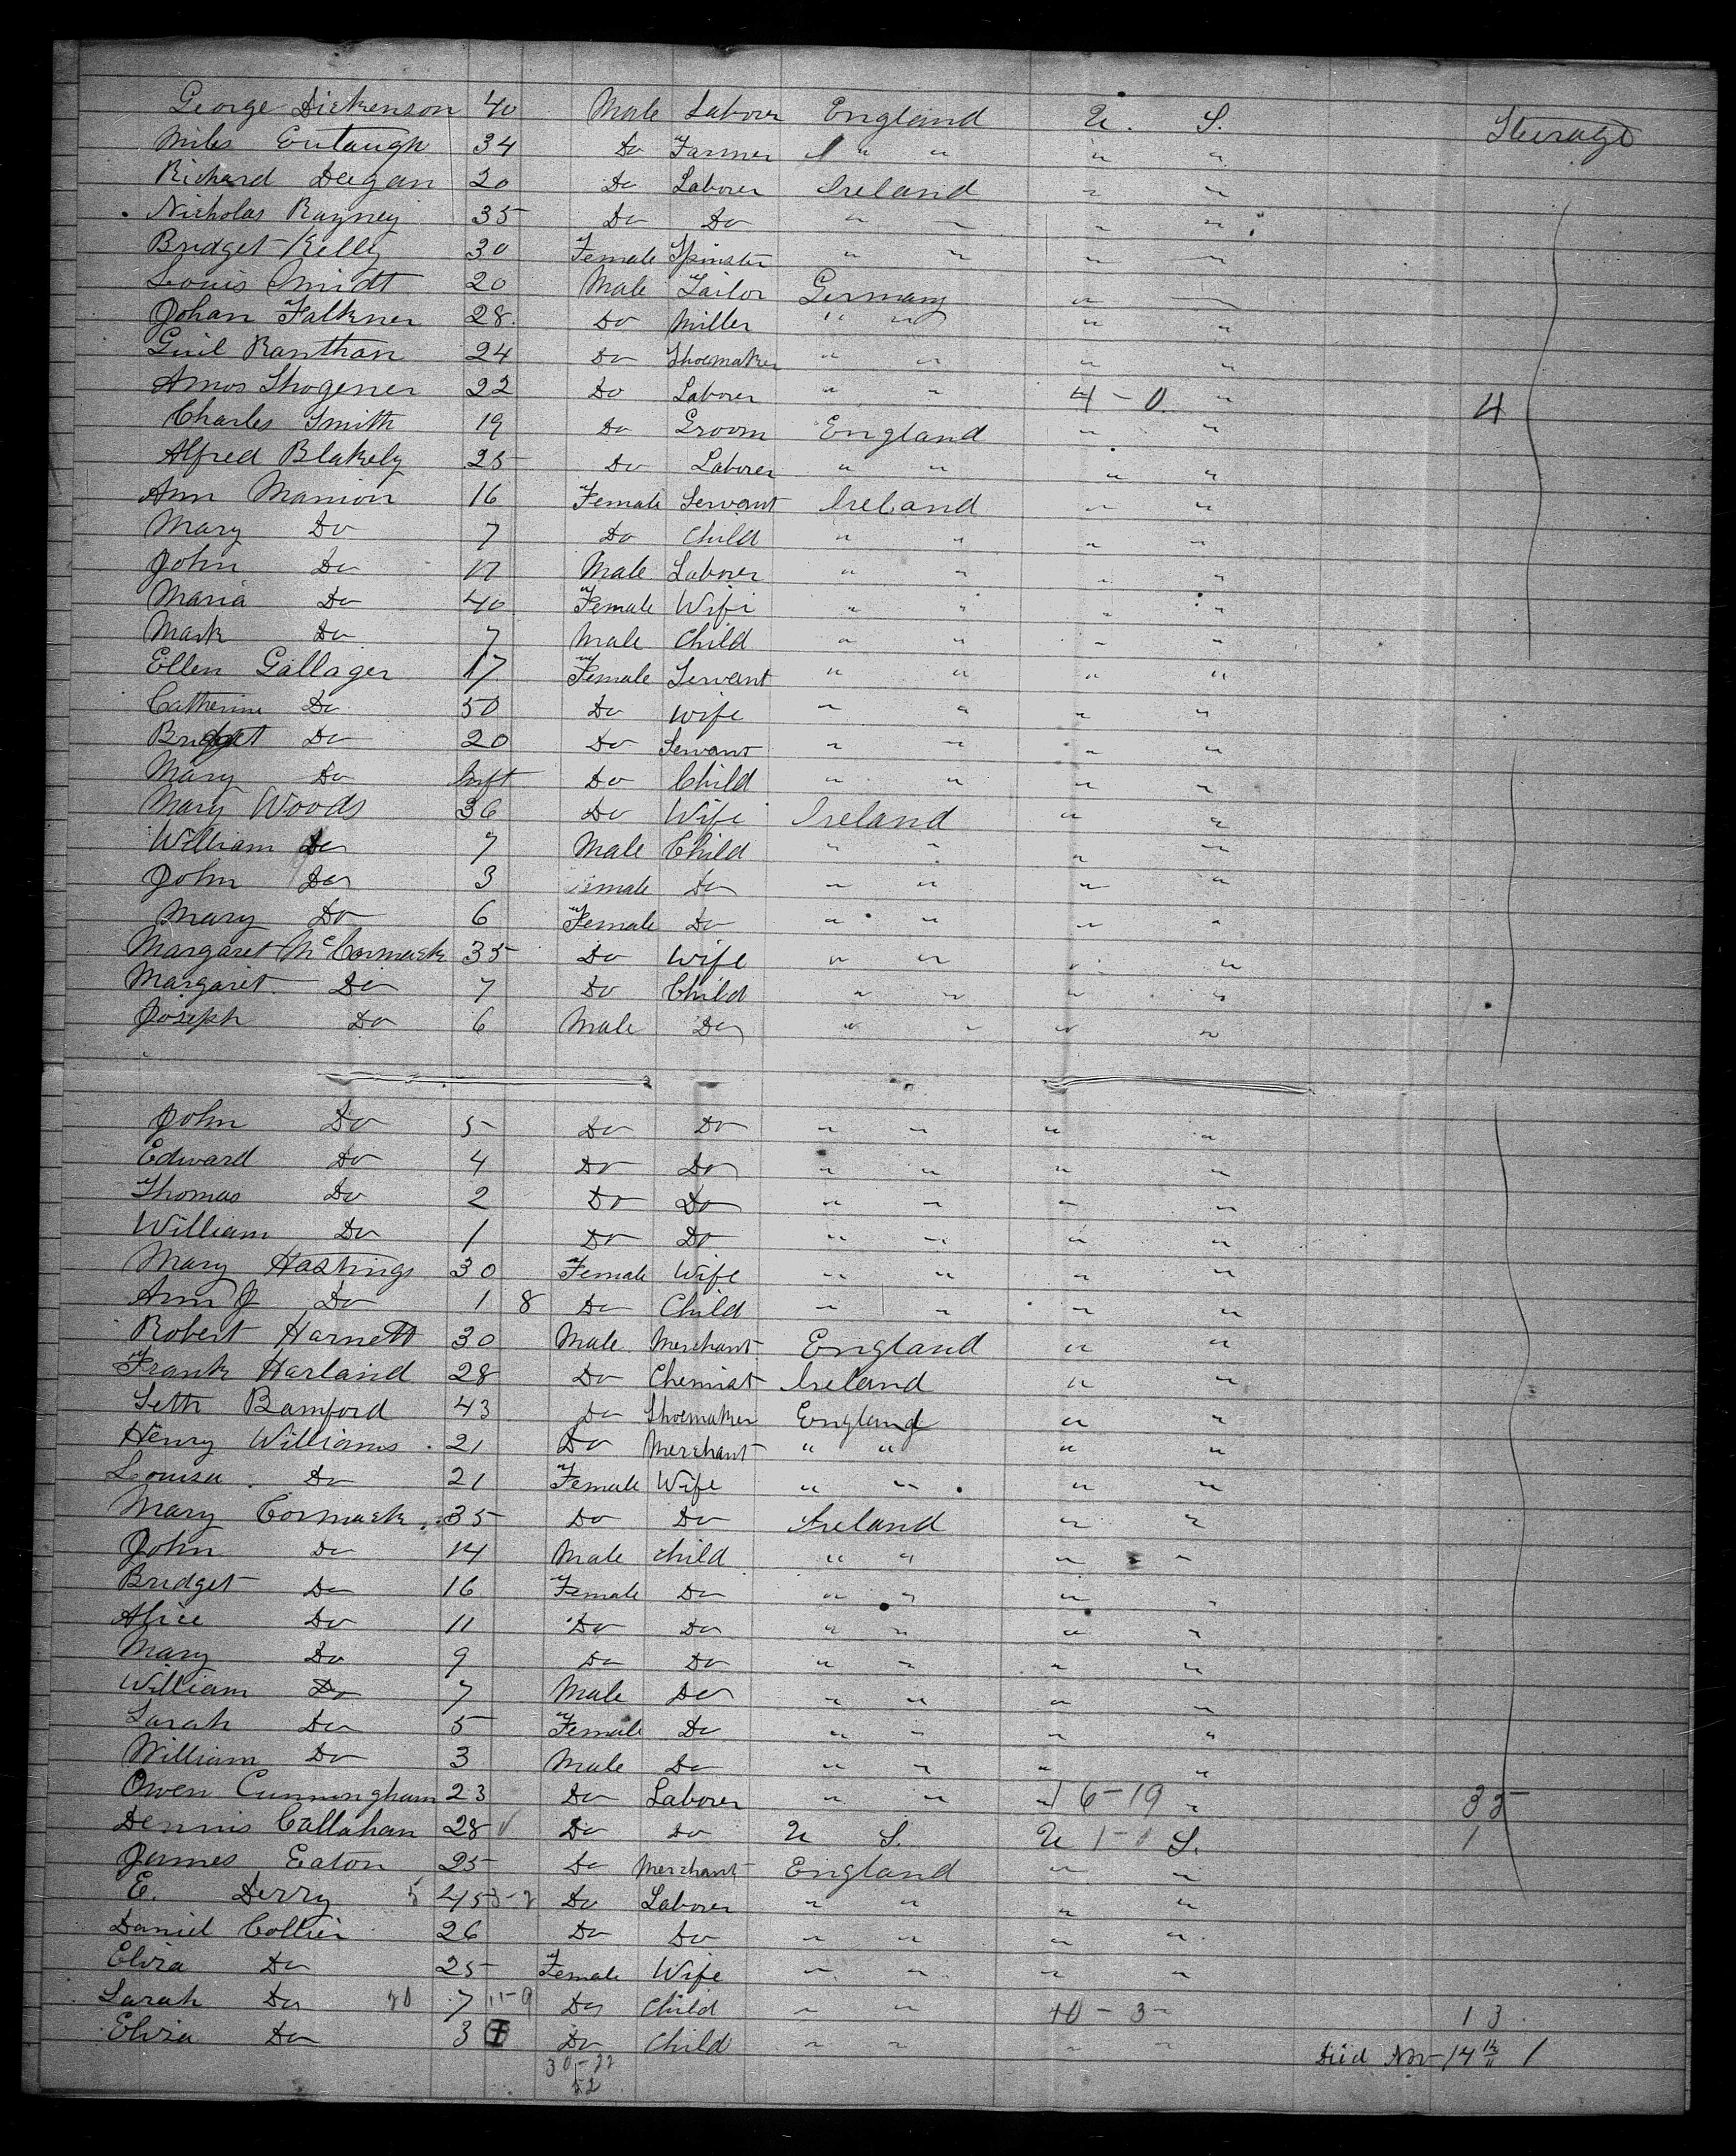 George Dickenson 40 Male Laborer England U. S. Steerage
Miles Eutaugh 34 Do Farmer " " " "
Richard Deegan 20 Do Laborer Ireland " "
Nicholas Rayney 35 Do Do " " " "
Bridget Kelly 30 Female Spinster " " " "
Louis Smidt 20 Male Tailor Germany " "
Johan Falkner 28 Do Miller " " " "
Guil Ranthan 24 Do Shoemaker " " " "
Amos Shogener 22 Do Laborer " " 4 - 0 " 4
Charles Smith 19 Do Groom England " "
Alfred Blakely 25 Do Laborer " " " "
Ann Manion 16 Female Servant Ireland " "
Mary Do 7 Do Child " " " "
John Do 17 Male Laborer " " " "
Maria Do 40 Female Wife " " " "
Mark Do 7 Male Child " " " "
Ellen Gallager 17 Female Servant " " " "
Catherine Do 50 Do Wife " " " "
Bridget Do 20 Do Servant " " " "
Mary Do Inft Do Child " " " "
Mary Woods 36 Do Wife Ireland " "
William Do 7 Male Child " " " "
John Do 3 male Do " " " "
Mary Do 6 Female Do " " " "
Margaret McCormack 35 Do Wife " " " "
Margaret Do 7 Do Child " " " "
Joseph Do 6 Male Do " " " "
John Do 5 Do Do " " " "
Edward Do 4 Do Do " " " "
Thomas Do 2 Do Do " " " "
William Do 1 Do Do " " " "
Mary Hastings 30 Female Wife " " " "
Ann J Do 1 8 Do Child " " " "
Robert Harnett 30 Male Merchant England " "
Frank Harland 28 Do Chemist Ireland " "
Seth Bamford 43 Do Shoemaker England " "
Henry Williams 21 Do Merchant " " " "
Louisa Do 21 Female Wife " " " "
Mary Cormack 35 Do Do Ireland " "
John Do 14 Male Child " " " "
Bridget Do 16 Female Do " " " "
Alice Do 11 Do Do " " " "
Mary Do 9 Do Do " " " "
William Do 7 Male Do " " " "
Sarah Do 5 Female Do " " " "
William Do 3 Male Do " " " "
Owen Cunningham 23 Do Laborer " " " 16-19 " 35
Dennis Callahan 28 Do Do U S. U 1-0 S. 1
James Eaton 25 Do Merchant England " "
E. Derry 5 45 3-2 Do Laborer " " " "
Daniel Collier 26 Do Do " " " "
Elvira Do 25 Female Wife " " " "
Sarah Do 20 7 11-9 Do Child " " 10-3- 13
Elvira Do 3 Do Child " " " " Died Nov 14 1
30-22
52